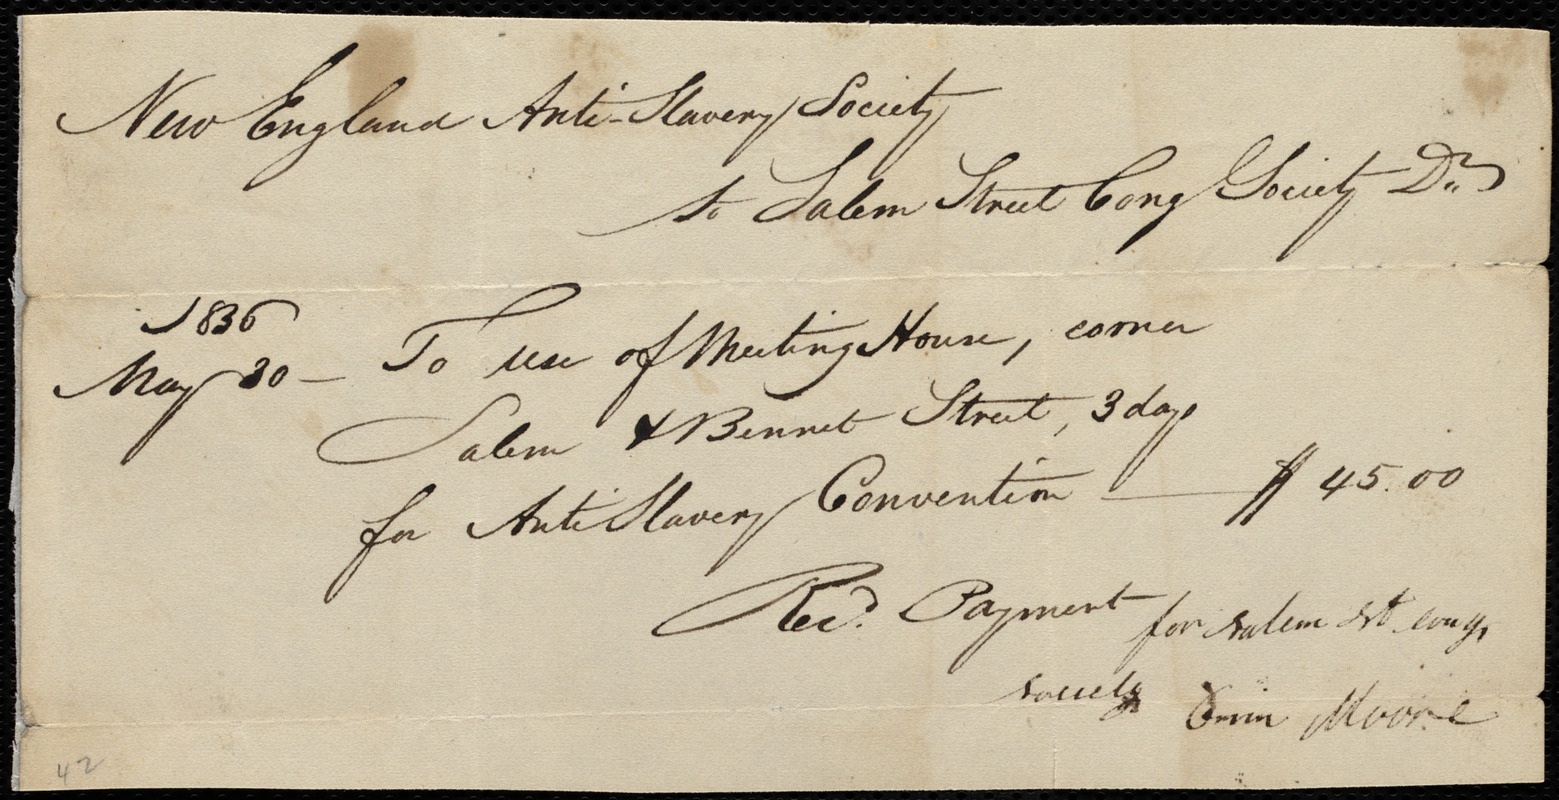 New England Anti-Slavery Society
to Salem Street Cong Society Dr.
1836
May 30 — To use of Meeting House, corner
Salem & Bennet Street, 3 days
for Anti Slavery Convention — $ 45.00
Recd. Payment for Salem St cong
society Moore
42